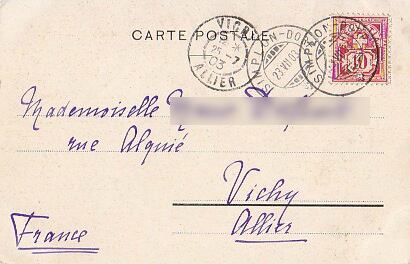 CARTE POSTALE
VICHY
25 -7
03
ALLIER
SIMPLON-DORF
23.VII.03
SIMPLON-DORF
10
Mademoiselle
rue Alquié
Vichy
Allier
France